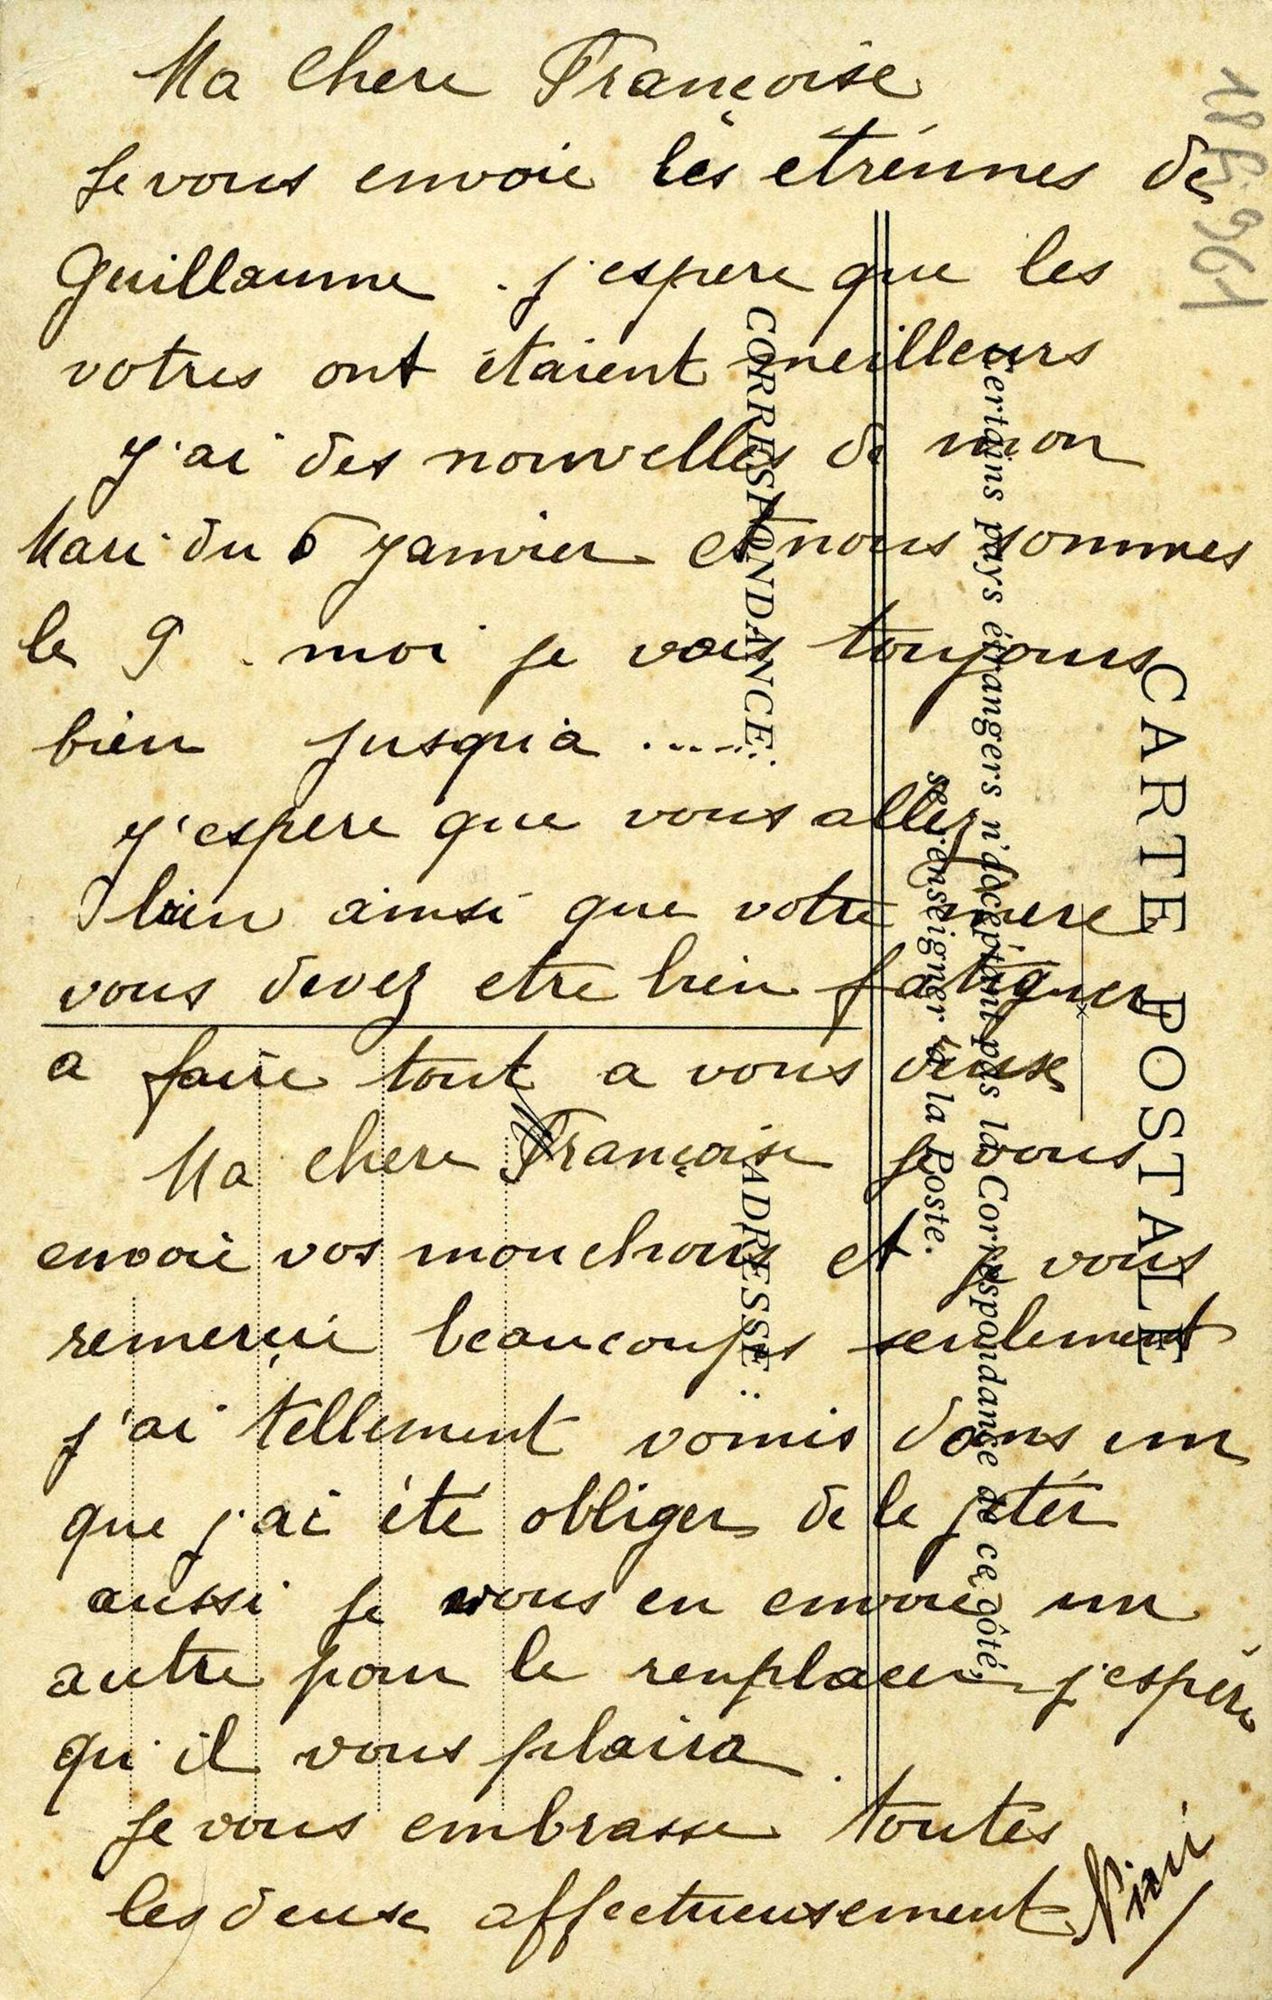 Ma Chere Françoise
Je vous envoie les etrénnes de
Guillaume . j'espere que les
votres ont étaient meilleurs
J'ai des nouvelles de mon
Mari du 6 Janvier et nous sommes
le 9 . moi je vais toujours
bien jusqu'a ......
J'espere que vous allez
bien ainsi que votre mere
vous devez etre bien fatiguer
a faire tout a vous deuse
Ma chere Françoise je vous
envoie vos mouchoirs et je vous
remerçie beaucoups seulement
j'ai tellement vomis dans un
que j'ai été obliger de le jeter
aussi je vous en envoie un
autre pour le remplacer j'espère
qu'il vous plaira.
Je vous embrasse toutes
les deuse affectueusement
CARTE POSTALE
Certains pays étrangers n'acceptant pas la Correspondance de ce côté,
se renseigner à la Poste.
CORRESPONDANCE.
ADRESSE :